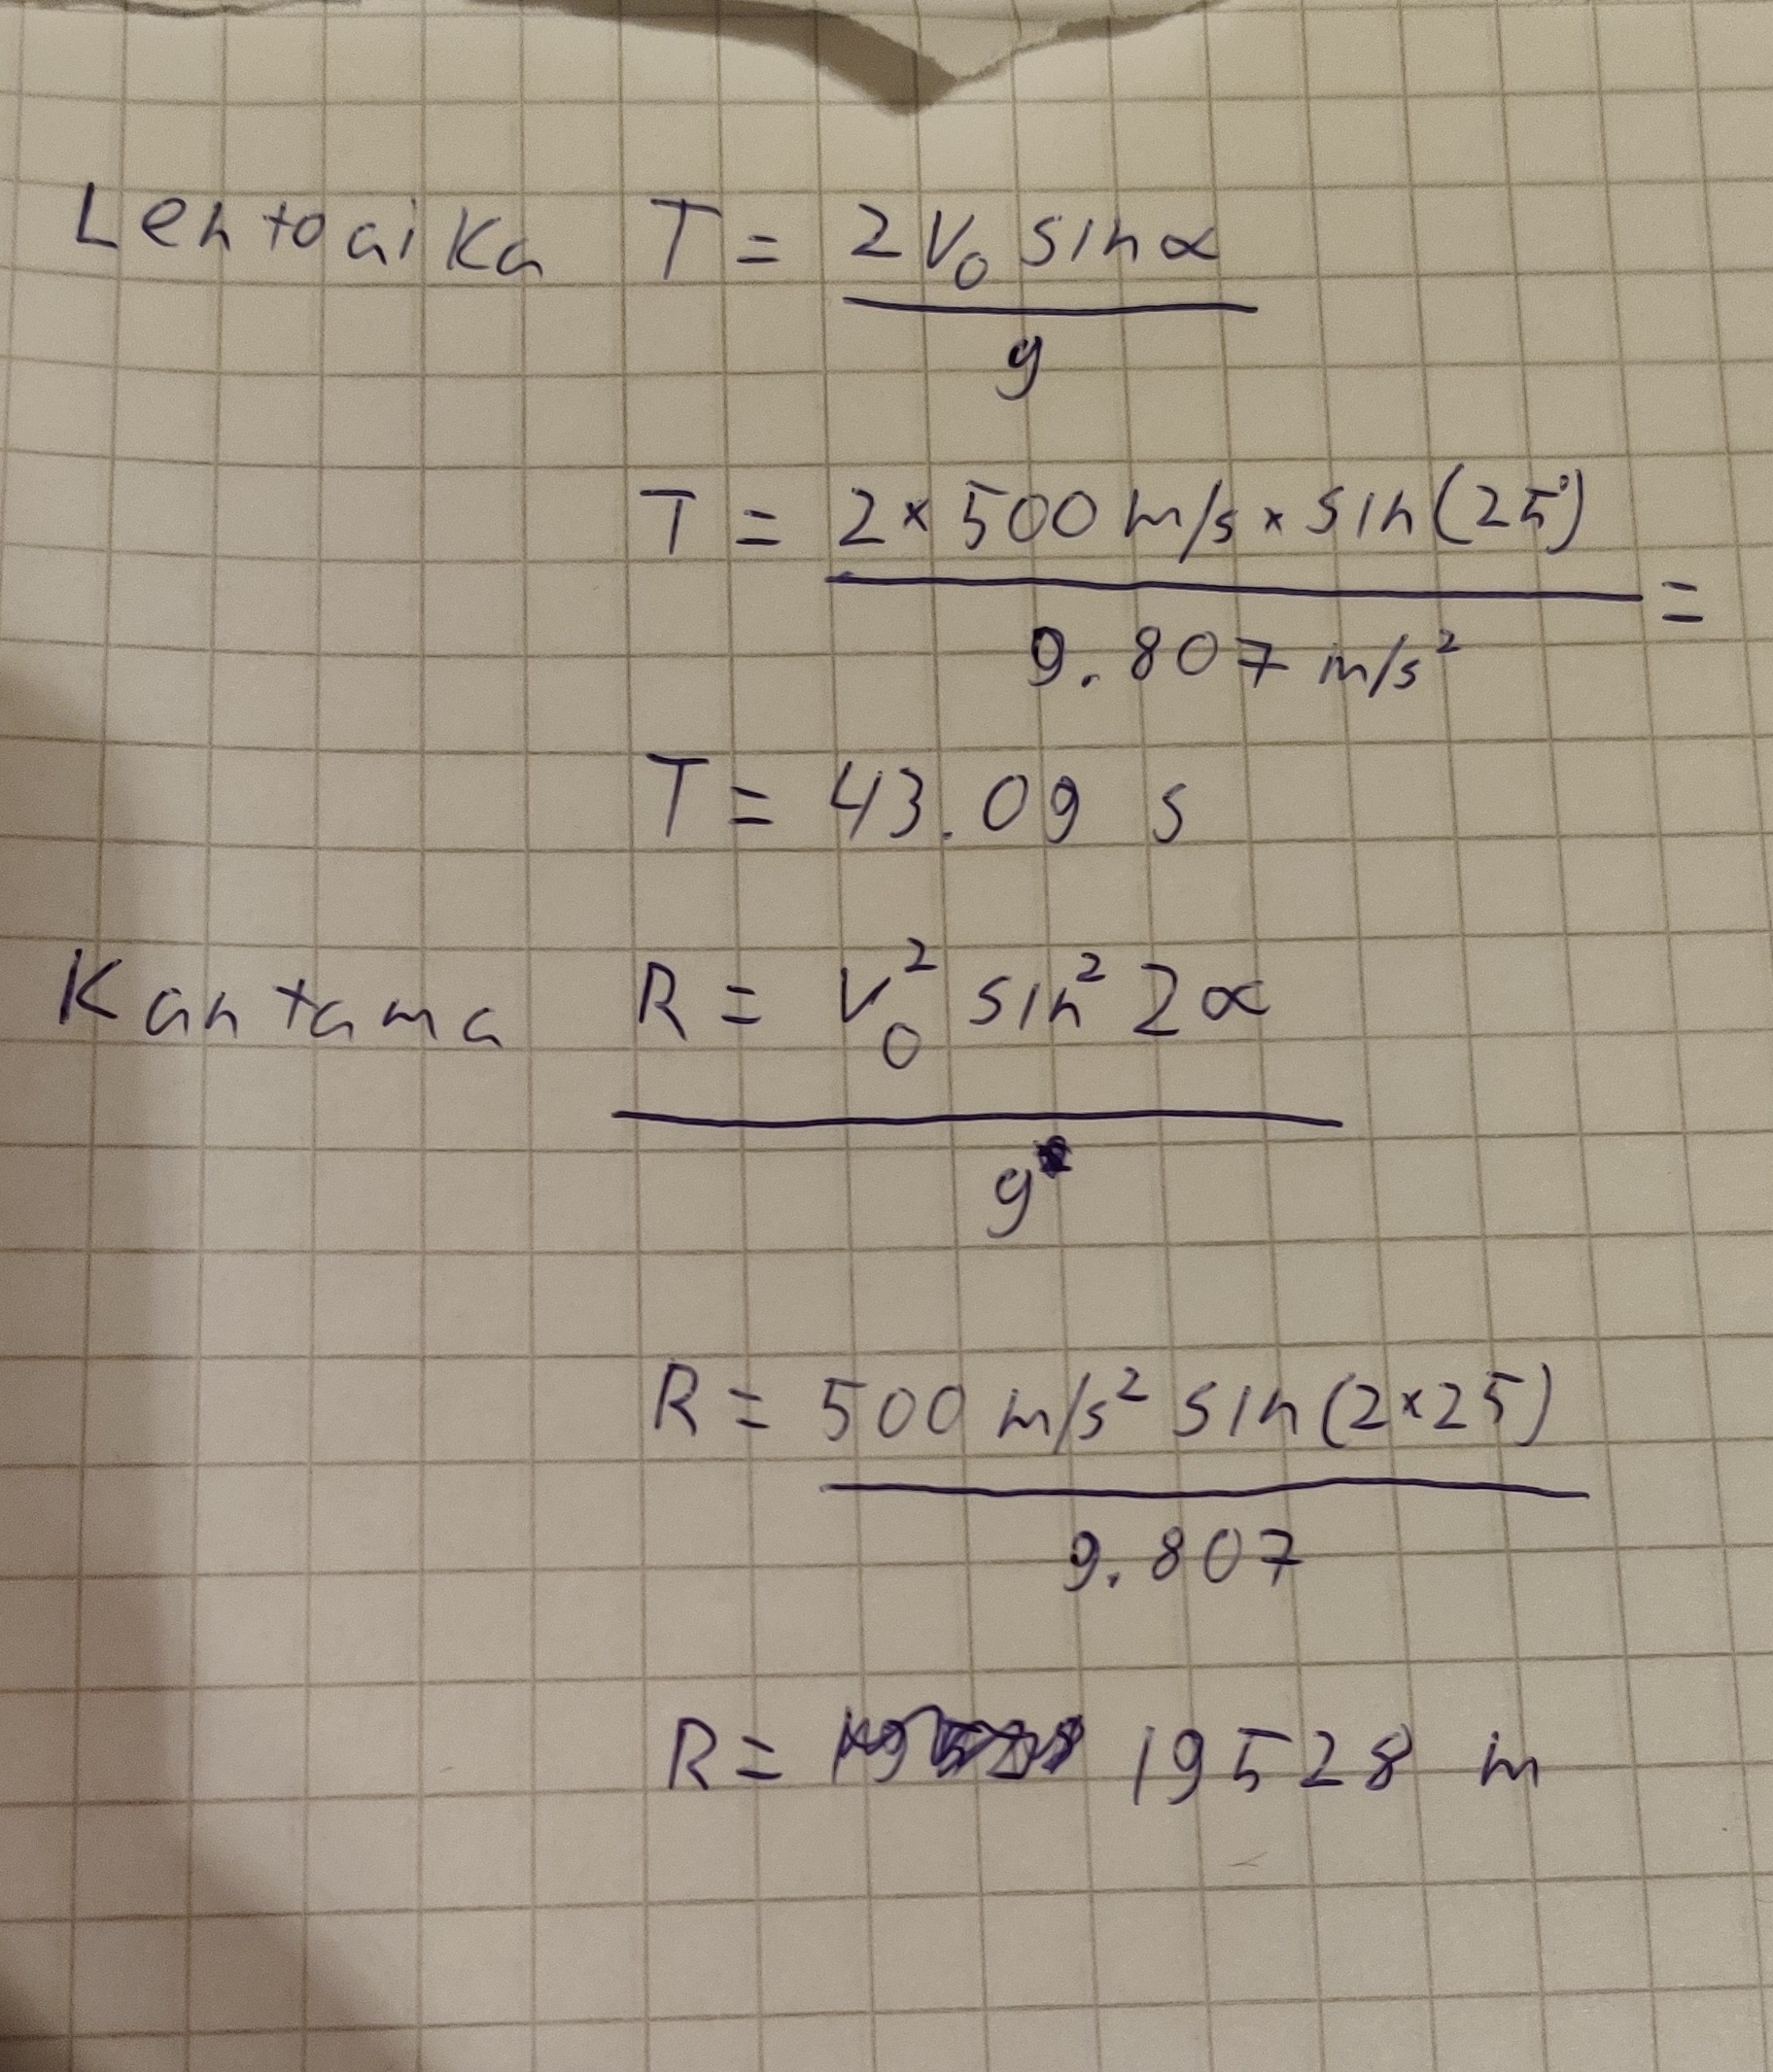 Lentoaika T = 2 V₀ sin α
g
T = 2 × 500 m/s × sin(25°)
=
9.807 m/s²
T = 43.09 s
Kantama R = V₀² sin² 2α
g
R = 500 m/s² sin(2×25)
9.807
R = 19528 m